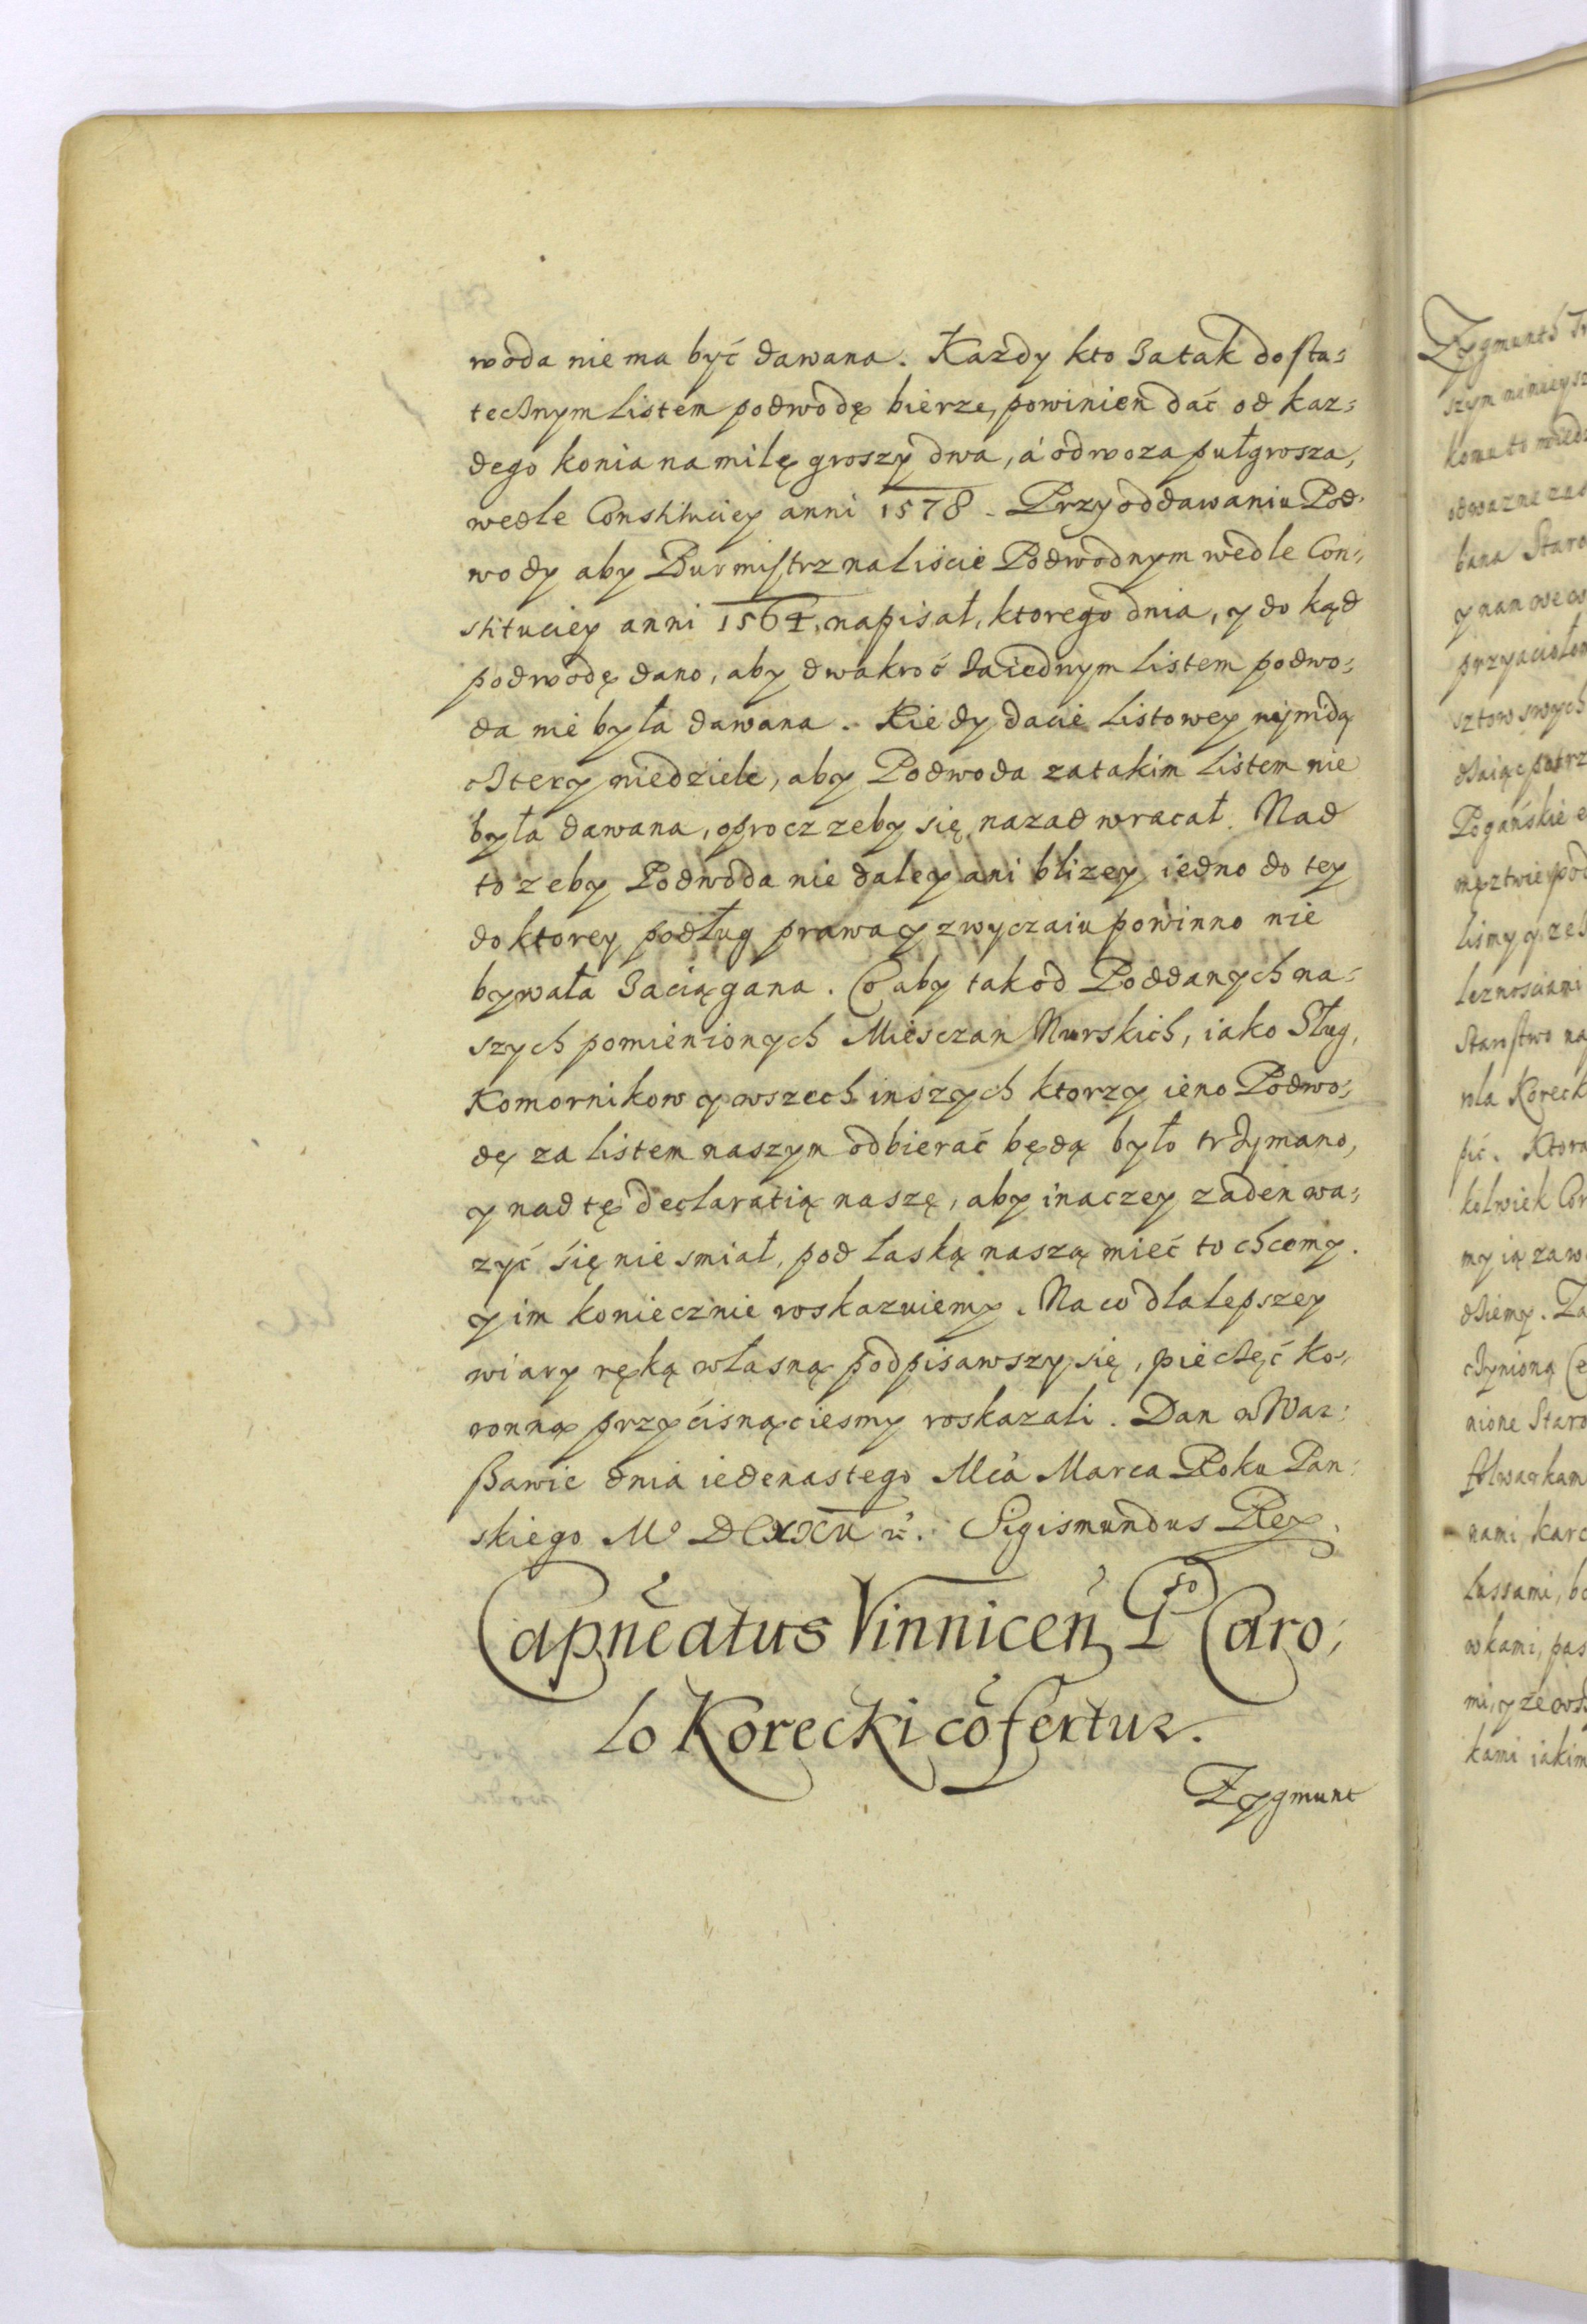 woda nie ma być dawana. Kazdy kto za tak dosta:
tecznym listem podwodę bierze, powinien dać od kaz:
dego konia na milę groszy dwa, á od woza pułgrosza,
wedle Constituciey anni 1578. Przy oddawaniu Pod:
wody aby Burmistrz na liscie Podwodnym wedle Con:
stituciey anni 1564, napisał, ktorego dnia, y do kąd
podwodę dano, aby dwakroć za iednym listem podwo:
da nie była dawana. Kiedy dacie listowey wynidą
cztery niedziele, aby Podwoda za takim listem nie
była dawana, oprocz zeby się nazad wracał. Nad
to zeby Podwoda nie daley ani blizey iedno do tey
do ktorey podług prawa y zwyczaiu powinno nie
bywała zaciągana. Co aby tak od Poddanych na:
szych pomienionych Miesczan Nurskich, iako Sług,
Komornikow y wszech inszych ktorzy ieno Podwo:
dę za listem naszym odbierać będą było trzymano,
y nad tę declaratią naszę, aby inaczey zaden wa:
zyć się nie smiał, pod łaską naszą mieć to chcemy.
y im koniecznie roskazuiemy. Na co dla lepszey
wiary ręką własną podpisawszy się, pieczęć Ko:
ronną przycisnąciesmy roskazali. Dan w War:
ßawie dnia iedenastego Mca Marca Roku Pan:
skiego Mº DCXXV Sigismundus Rex.
Capneatus Vinnicen Gso Caro:
lo Korecki cōfertur.
Zygmunt
Zygmunth
komu to wiedz
bana Staro
przyacioło
sztow swych
Pogańskie
męztwie pod
Starostwo na
wla Koreck
pić. Ktora
kolwiek Con
my ią zaw
dziemy. Za
nione Staro
folwarkam
nami karc
lassami, bo
wkami, pas
kami iakim